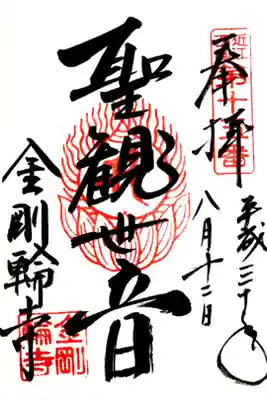 奉拝
平成三十年
八月十二日
聖観世音
金剛輪寺
近江
番
金剛
輪寺